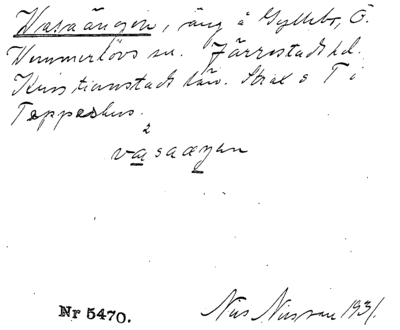 Wasaängen, äng å Gyllebo, Ö.
Vemmerlövs sn. Järrestads hd.
Kristianstads län. Strax s T i
Teppeshus.
2
vasaæŋan
Nr 5470.
Nils Nilsson 1931.